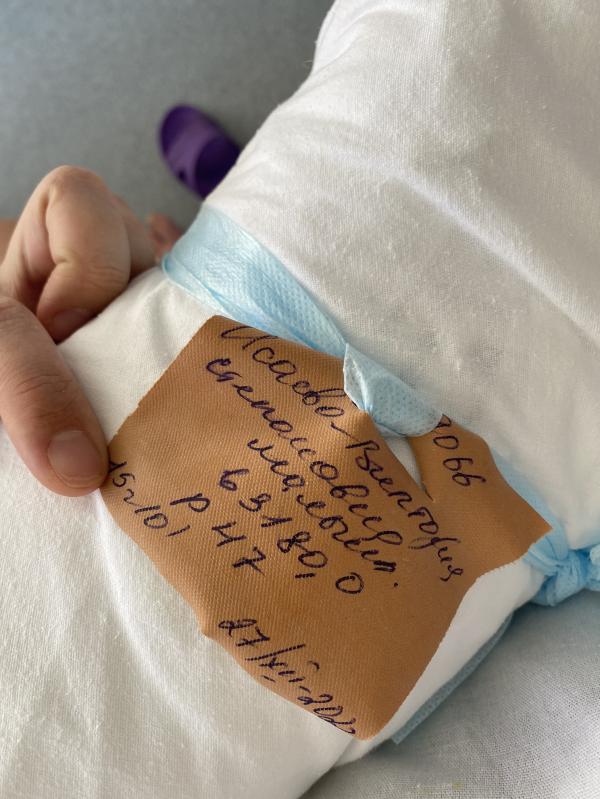 Исаева Виктория
степановна
мальчик.
в 3180,0
р 47
15ч10'
27/XII-202